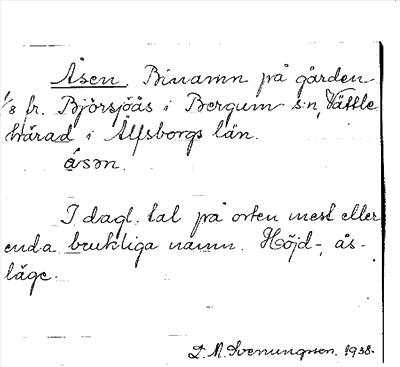 Åsen, Binamn på gården
1/8 fr. Björsjöås i Bergum s:n, Vättle
härad i Älfsborgs län.
åsən.
I dagl. tal på orten mest eller
enda brukliga namn. Höjd-, ås-
läge.
D. M. Svenungsson. 1938.